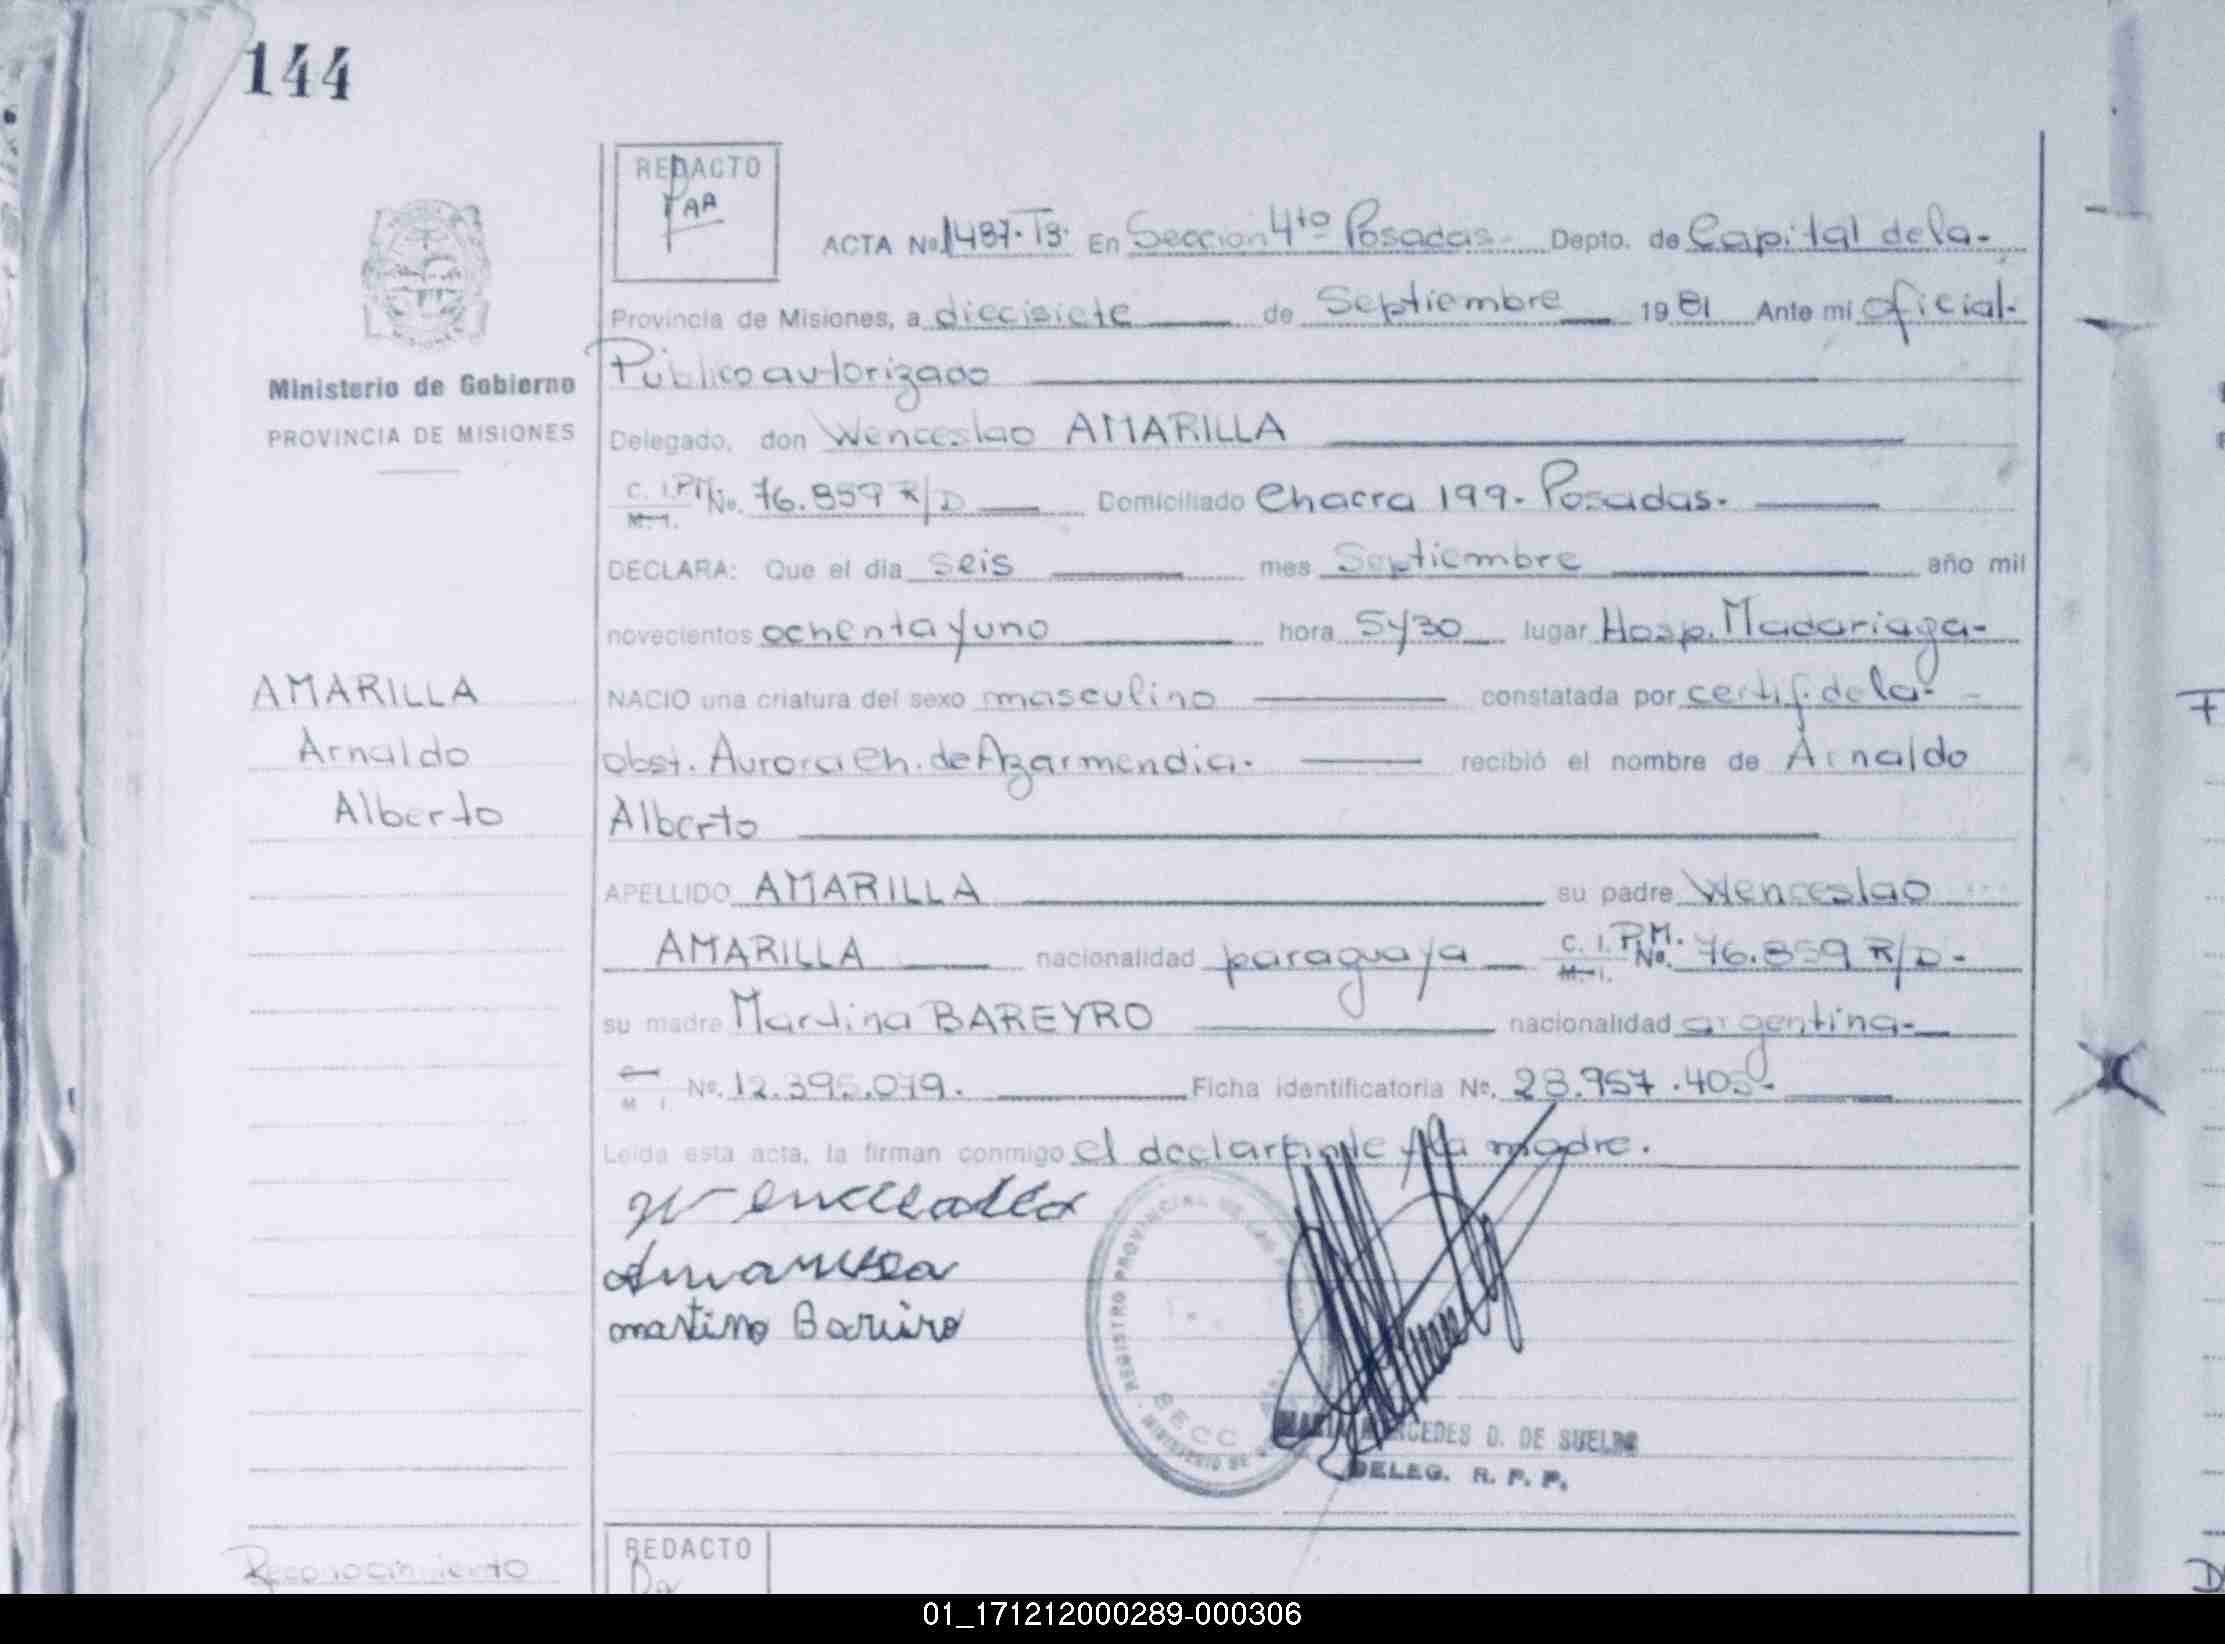 144
REDACTO
PAA
ACTA No. 1487. T3. En Sección 4to Posadas - Depto. de Capital de la -
Provincia de Misiones, a diecisiete de Septiembre 1981 Ante mi oficial -
Público autorizado
Ministerio de Gobierno
PROVINCIA DE MISIONES
Delegado, don Wenceslao AMARILLA
C. I. P.M. No. 76.859 R/D Domiciliado Chacra 199 - Posadas.
M. I.
DECLARA: Que el dia seis mes Septiembre año mil
novecientos ochenta y uno hora 5 y 30 lugar Hosp. Madariaga -
AMARILLA
Arnaldo
Alberto
NACIO una criatura del sexo masculino constatada por certif. de la -
obst. Aurora Ch. de Azarmendia. recibió el nombre de Arnaldo
Alberto
APELLIDO AMARILLA su padre Wenceslao
AMARILLA nacionalidad paraguaya C. I. P.M. No. 76.859 R/D -
M. I.
su madre Martina BAREYRO nacionalidad argentina -
M I. No. 12.395.079. Ficha identificatoria No. 28.957.405 -
Leida esta acta, la firman conmigo el declarante y la madre.
REGISTRO PROVINCIAL DE LAS
SECC
MINISTERIO DE
MARIA MERCEDES D. DE SUELDO
DELEG. R. P. P.
Reconocimiento
REDACTO
01_171212000289-000306